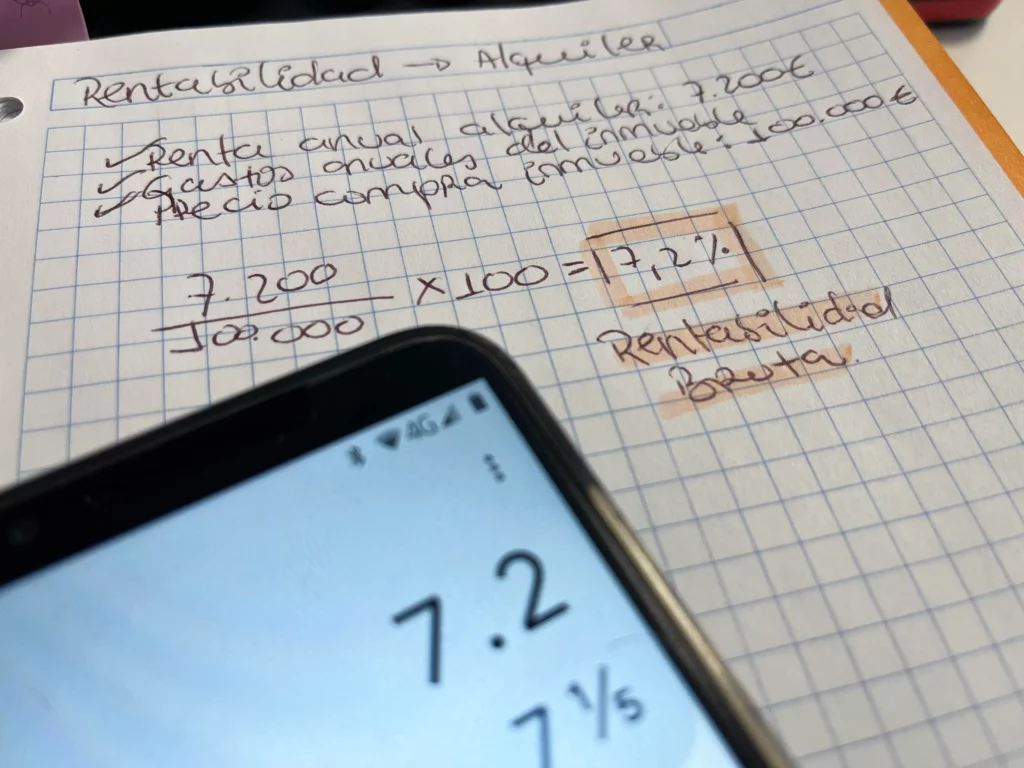 Rentabilidad → Alquiler
✓ Renta anual alquiler: 7.200€
✓ Gastos anuales del inmueble
✓ Precio compra inmueble: 100.000€
7.200
100.000
× 100 = 7,2%
Rentabilidad
Bruta.
4G
7.2
7 1/5